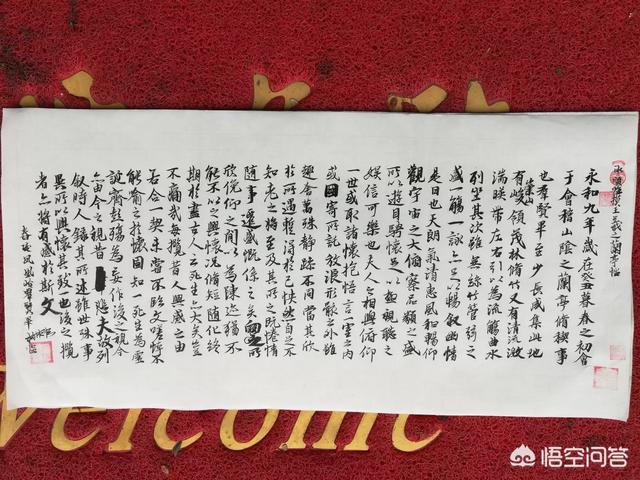 王羲之蘭亭序
永和九年歲在癸丑暮春之初會
于會稽山陰之蘭亭脩稧事
也羣賢畢至少長咸集此地
有崇山峻領茂林脩竹又有清流激
湍暎帶左右引以為流觴曲水
列坐其次雖無絲竹管弦之
盛一觴一詠亦足以暢敘幽情
是日也天朗氣清惠風和暢仰
觀宇宙之大俯察品類之盛
所以遊目騁懷足以極視聽之
娛信可樂也夫人之相與俯仰
一世或取諸懷抱悟言一室之內
或因寄所託放浪形骸之外雖
趣舍萬殊靜躁不同當其欣
於所遇蹔得於己怏然自足不
知老之將至及其所之既惓情
隨事遷感慨係之矣向之所
欣俛仰之閒以為陳迹猶不
能不以之興懷況脩短隨化終
期於盡古人云死生亦大矣豈
不痛哉每攬昔人興感之由
若合一契未嘗不臨文嗟悼不
能喻之於懷固知一死生為虛
誕齊彭殤為妄作後之視今
亦由今之視昔悲夫故列
敘時人錄其所述雖世殊事
異所以興懷其致一也後之攬
者亦將有感於斯文
welcome
悟空问答